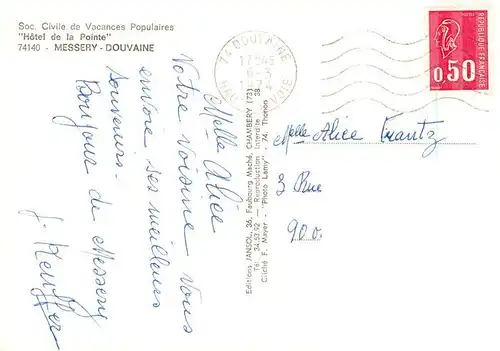 Soc. Civile de Vacances Populaires
"Hôtel de la Pointe"
74140 - MESSERY - DOUVAINE
74 DOUVAINE
17H45
HAUTE SAVOIE
RÉPUBLIQUE FRANÇAISE
0,50
Melle Alice
Notre voisine vous
envoie ses meilleurs
souvenirs.
Bonjour de Messery
Editions JANSOL, 36, Faubourg Maché, CHAMBERY (73)
Tél. 34.53.92 — Reproduction Interdite
Cliché F. Mayer - "Photo Lamy" 74. Thonon
Melle Alice Frantz
3 Rue
900